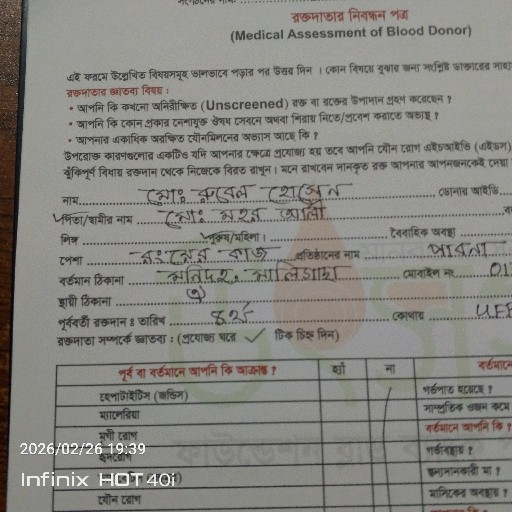 রক্তদাতার নিবন্ধন পত্র
(Medical Assessment of Blood Donor)
এই ফরমে উল্লেখিত বিষয়সমূহ ভালভাবে পড়ার পর উত্তর দিন । কোন বিষয়ে বুঝার জন্য সংশ্লিষ্ট ডাক্তারের
রক্তদাতার জ্ঞাতব্য বিষয় :
• আপনি কি কখনো অনিরীক্ষিত (Unscreened) রক্ত বা রক্তের উপাদান গ্রহণ করেছেন ?
• আপনি কি কোন প্রকার নেশাযুক্ত ঔষধ সেবনে অথবা শিরায় নিতে/প্রবেশ করাতে অভ্যস্থ ?
• আপনার একাধিক অরক্ষিত যৌনমিলনের অভ্যাস আছে কি ?
উপরোক্ত কারণগুলোর একটিও যদি আপনার ক্ষেত্রে প্রযোজ্য হয় তবে আপনি যৌন রোগ এইচআইভি (এইডস)
ঝুঁকিপূর্ণ বিধায় রক্তদান থেকে নিজেকে বিরত রাখুন । মনে রাখবেন দানকৃত রক্ত আপনার আপনজনকেই দেয়া
নাম মোঃ রুবেল হোসেন ডোনার আইডি
পিতা/স্বামীর নাম মোঃ মহর আলী
লিঙ্গ পুরুষ/মহিলা । বৈবাহিক অবস্থা
পেশা রংয়ের কাজ প্রতিষ্ঠানের নাম পাবনা
বর্তমান ঠিকানা মোবাইল নং 01
স্থায়ী ঠিকানা ঐ
পূর্ববর্তী রক্তদান : তারিখ কোথায়
রক্তদাতা সম্পর্কে জ্ঞাতব্য : (প্রযোজ্য ঘরে ✓ টিক চিহ্ন দিন)
পূর্ব বা বর্তমানে আপনি কি আক্রান্ত ? হ্যাঁ না বর্তমানে
হেপাটাইটিস (জন্ডিস) গর্ভপাত হয়েছে ?
ম্যালেরিয়া সাম্প্রতিক ওজন কমে
মৃগী রোগ বর্তমানে আপনি কি ?
হৃদরোগ গর্ভাবস্থায় ?
স্তন্যদানকারী মা ?
যৌন রোগ মাসিকের অবস্থায় ?
2026/02/26 19:39
Infinix HOT 40i